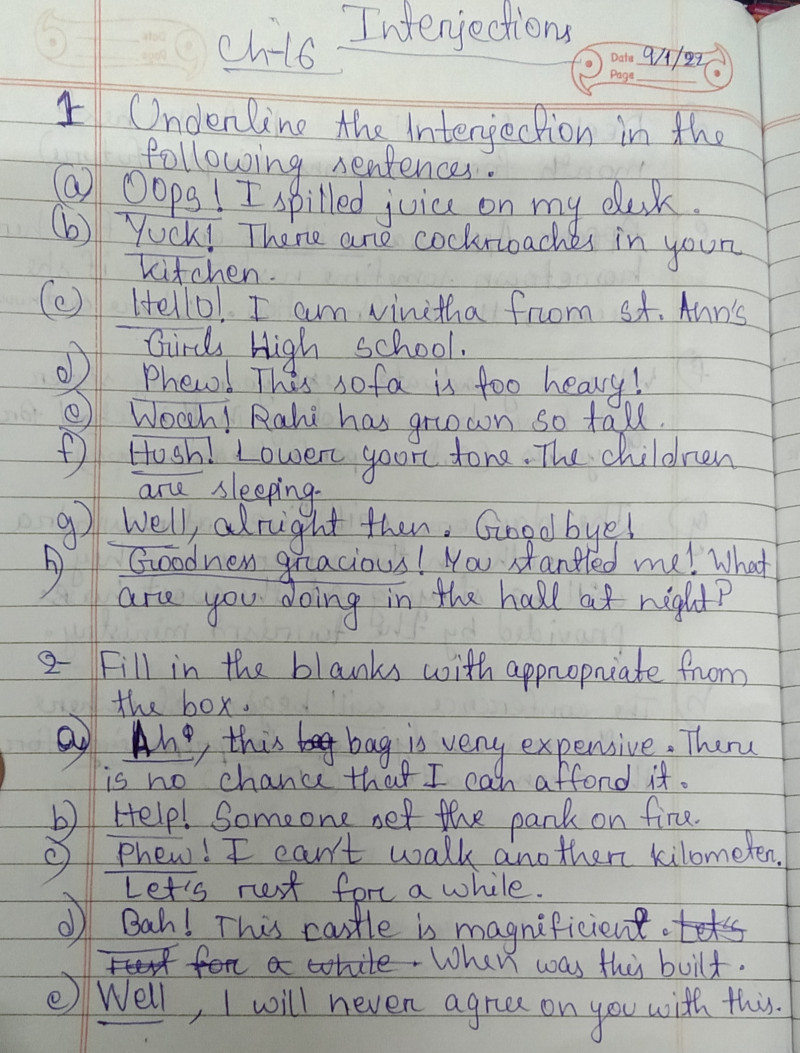 Ch-16 Interjections
Date 9/1/22
Page
1 Underline the Interjection in the
following sentences.
(a) Oops! I spilled juice on my desk.
(b) Yuck! There are cockroaches in your
kitchen.
(c) Hello! I am vinitha from st. Ann's
Girls High school.
d) Phew! This sofa is too heavy!
e) Woah! Rahi has grown so tall.
f) Hush! Lower your tone. The children
are sleeping.
g) Well, alright then. Goodbye!
h) Goodness gracious! You startled me! What
are you doing in the hall at night?
2- Fill in the blanks with appropriate from
the box.
a) Ah!, this bag bag is very expensive. There
is no chance that I can afford it.
b) Help! Someone set the park on fire.
c) Phew! I can't walk another kilometer.
Let's rest for a while.
d) Bah! This castle is magnificient. Let's
rest for a while. When was this built.
e) Well, I will never agree on you with this.